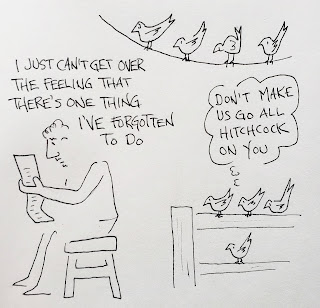 I JUST CAN'T GET OVER
THE FEELING THAT
THERE'S ONE THING
I'VE FORGOTTEN
TO DO
DON'T MAKE
US GO ALL
HITCHCOCK
ON YOU